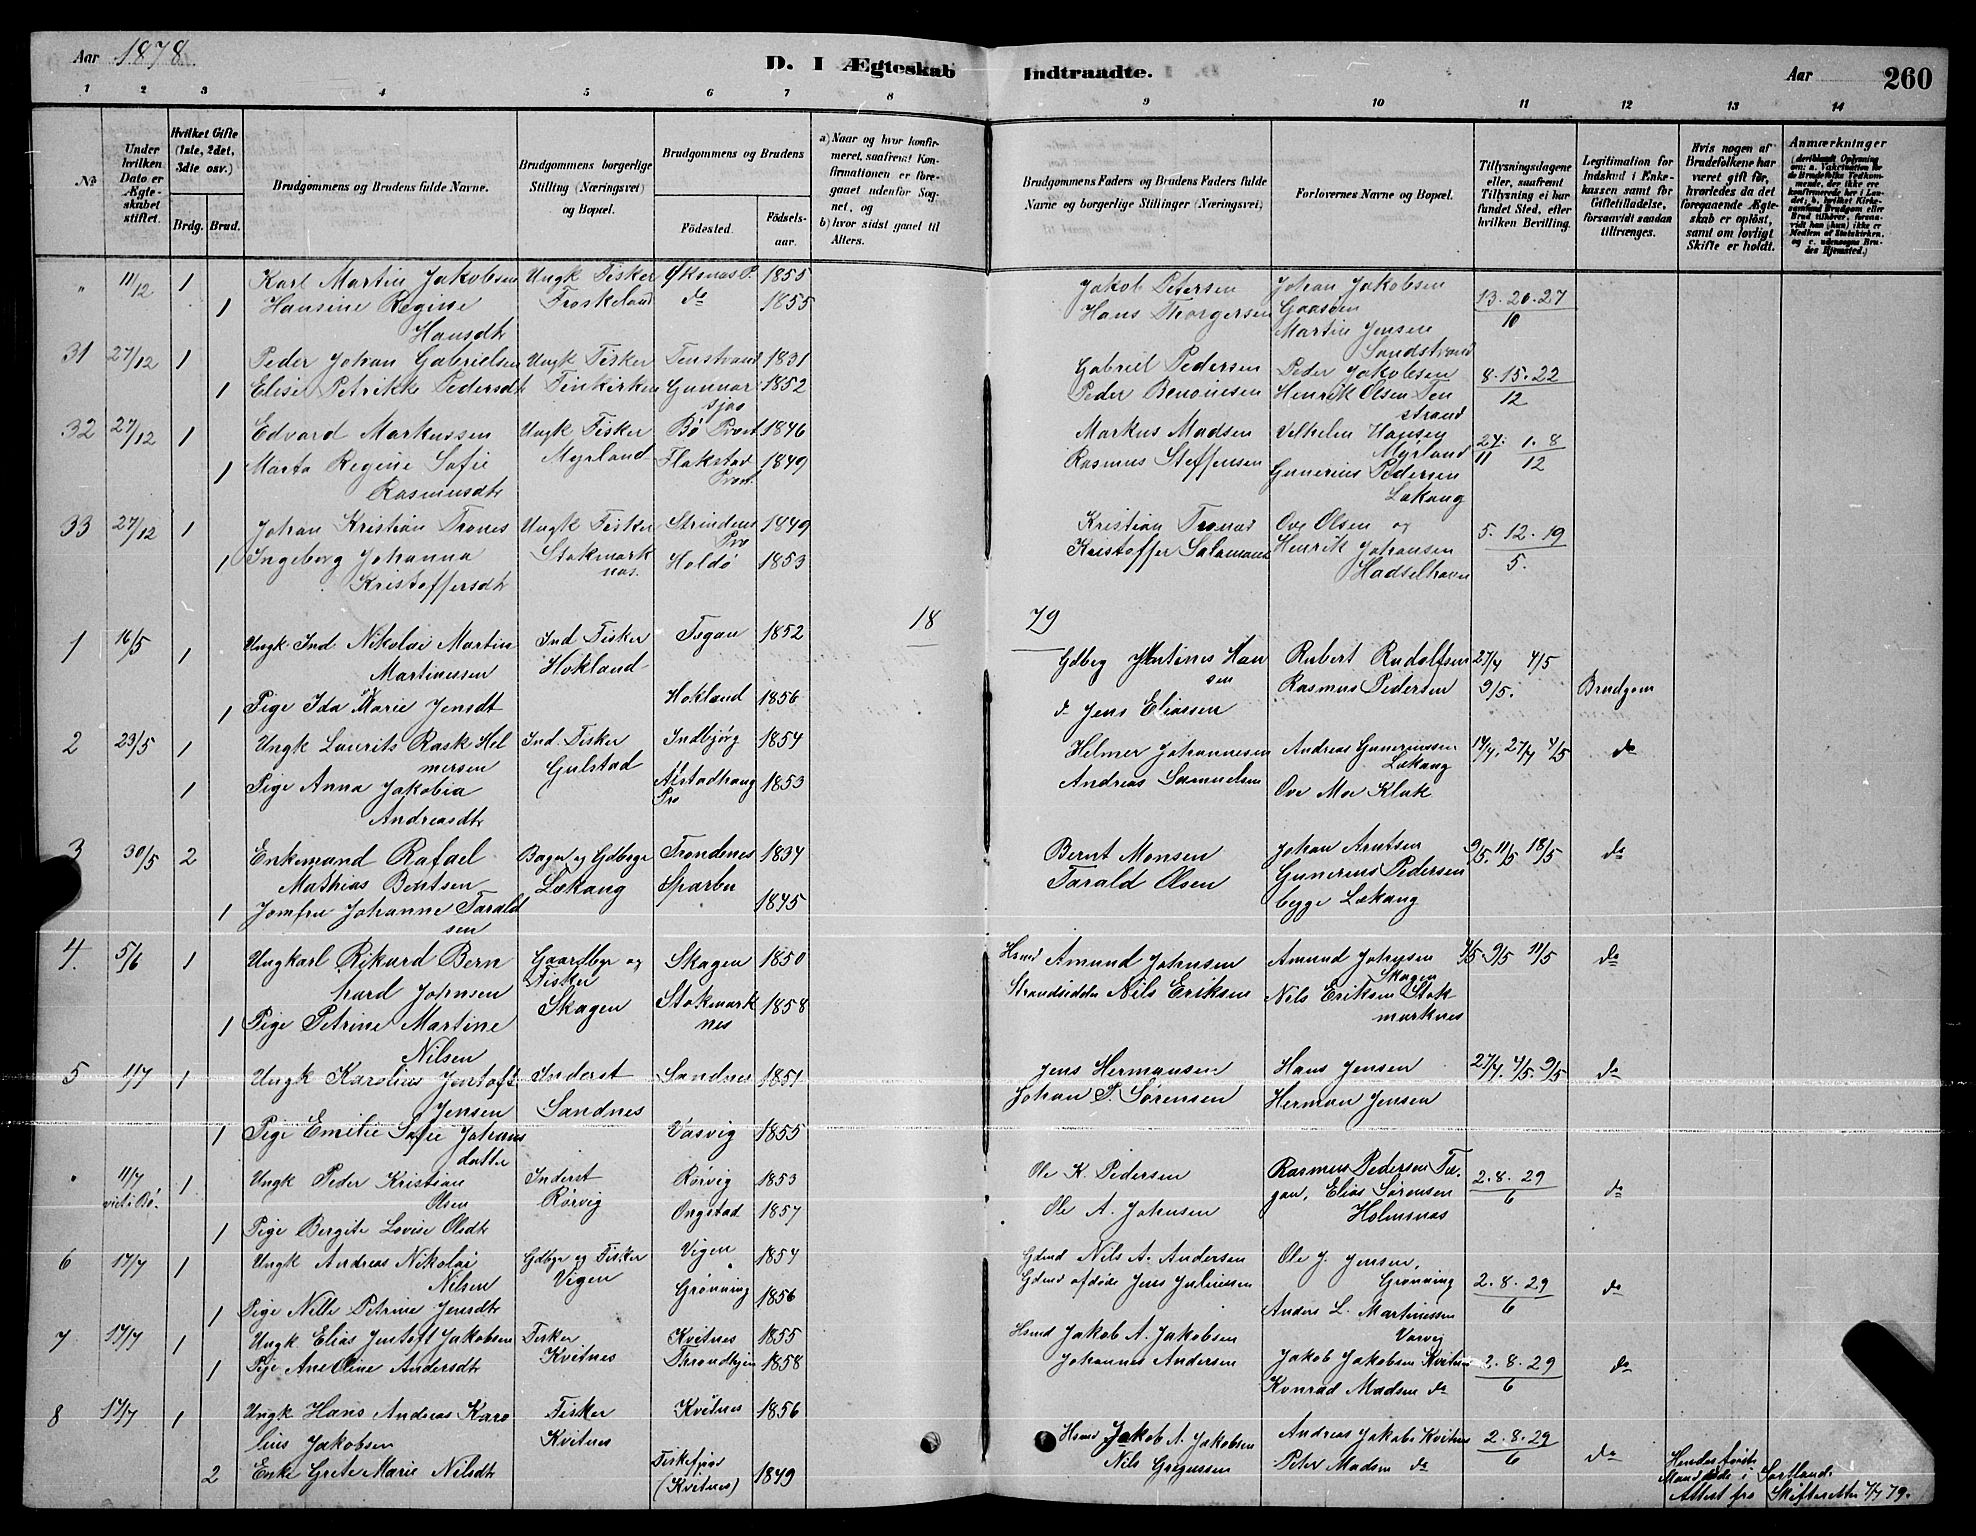 Aar 1878.
D. I Ægteskab Indtraadte.
Aar
260
1 2 3 4 5 6 7 8 9 10 11 12 13 14
No
Under hvilken Dato er Ægteskabet stiftet.
Hvilket Gifte (1ste, 2det, 3die osv.)
Brdg. Brud.
Brudgommens og Brudens fulde Navne.
Brudgommens borgerlige Stilling (Næringsvei) og Bopæl.
Brudgommens og Brudens
Fødested.
Fødselsaar.
a) Naar og hvor konfirmeret, saafremt Konfirmationen er foregaaet udenfor Sognet, og
b) hvor sidst gaaet til Alters.
Brudgommens Faders og Brudens Faders fulde Navne og borgerlige Stillinger (Næringsvei)
Forlovernes Navne og Bopæl.
Tillysningsdagene eller, saafremt Tillysning ei har fundet Sted, efter hvilken Bevilling.
Legitimation for Indskud i Enkekassen samt for Giftetilladelse, forsaavidt saadan tiltrænges.
Hvis nogen af Brudefolkene har været gift før, hvorledes da det foregaaende Ægteskab er opløst, samt om lovligt Skifte er holdt.
Anmærkninger
" 11/12 1 Karl Martin Jakobsen Ungk Fisker Øksnes P. 1855 Jakob Petersen Johan Jakobsen 13. 20. 27
1 Hansine Regine Froskeland do 1855 Hans Thorgersen Gaasen 10
Hansdtr Martin Jensen
Sandstrand
31 27/12 1 Peder Johan Gabrielsen Ungk Fisker Tenstrand 1831 Gabriel Pedersen Peder Jakobsen 8. 15. 22
1 Elise Petrikke Pedersdt Finkirken Gunnar 1852 Peder Benonisen Henrik Olsen Ten 12
sjos strand
32 27/12 1 Edvard Markussen Ungk Fisker Bø Præst 1846 Markus Madsen Vilhelm Hansen 24. 1. 8
1 Marta Regine Sofie Myrland Flakstad 1849 Rasmus Steffensen Myrland 11 12
Rasmusdtr Præst Gunerius Pedersen
Lekang
33 27/12 1 Johan Kristian Trones Ungk Fisker Strindens 1849 Kristian Trones Ove Olsen og 5. 12. 19
1 Ingeborg Johanna Stokmark Pro Holdø 1853 Kristoffer Salamons Henrik Johansen 5.
Kristoffersdtr nes. Hadselhavn
18 79
1 16/5 1 Ungk. Ind. Nikolai Martin Ind Fisker Tegan 1852 Gdbrg Martines Han Rubert Rudolfsen 27/4 4/5
Martinessen Hokland sen Rasmus Pedersen 9/5. Brudgom
1 Pige Ida Marie Jensdt Hokland 1856 do Jens Eliassen
2 23/5 1 Ungk Laurits Rask Hel Ind. Fisker Indbjørg 1854 Helmer Johannesen Andreas Guneriussen 14/4. 27/4 4/5 do
mersen Gulstad Lekang
1 Pige Anna Jakobia Alstadhaug 1853 Andreas Samuelsen Ove Moe Klak
Andreasdtr Pro
3 30/5 2 Enkemand Rafael Bager og Gdbrgr Trondenes 1834 Bernt Monsen Johan Arntsen 9/5. 11/5 18/5 do
Mathias Bentsen Lekang Sparbu Tarald Olsen Gunerius Pedersen
1 Jomfru Johanne Tarald 1845 begge Lekang
sen
4. 5/6 1 Ungkarl Rikard Bern Gaardbgr og Skagen 1850 Hsmd Amund Johnsen Amund Johnsen 4/5. 9/5 11/5 do
hard Johnsen Fisker Skagen
1 Pige Petrine Martine Skagen Stokmark 1858 Strandsidder Nils Eriksen Nils Eriksen Stok
Nilsen nes marknes
5 1/7 1 Ungk Karolius Jentoft Inderst Sandnes 1851 Jens Hermansen Hans Jensen 27/4. 4/5. 9/5 do
Jensen Sandnes Johan P. Sørensen Herman Jensen
1 Pige Emilie Sofie Johans Vasvig 1855
datter
" 11/7 1 Ungk Peder Kristian Inderst Rørvig 1853 Ole K. Pedersen Rasmus Pedersen Te 2. 8. 29
viet i Bø. Olsen Rørvig gan, Elias Sørensen 6 do
1 Pige Bergite Lovise Olsdtr Ongstad 1857 Ole A. Johnsen Holmsnes
6 17/7 1 Ungk Andreas Nikolai Gdbgr og Fisker Vigen 1854 Gdmd Nils A. Andersen Ole J. Jensen,
Nilsen Vigen Grønning 1856 Gdmd afdøde Jens Juliussen Grønning 2. 8. 29 do
1 Pige Nille Petrine Jensdtr Anders L. Martinessen 6
Vasvig
7 17/7 1 Ungk. Elias Jentoft Jakobsen Fisker Kvitnes 1855 Hsmd Jakob A. Jakobsen
1 Pige Ane Oline Andersdtr Kvitnes Throndhjem 1858 Johannes Andersen Jakob Jakobsen Kvitnes 2. 8. 29 do
Konrad Madsen do 6
8 17/7 1 Ungk Hans Andreas Karo Fisker Kvitnes 1856 Hsmd Jakob A. Jakobsen Andreas Jakobs Kvitnes 2. 8. 29
lius Jakobsen Kvitnes Nils Gregussen Peter Madsen do 6 do
2 Enke Grete Marie Nilsdtr Fiskefjor 1849 Hendes første
(Kvitnes) Mand døde i Sortland.
Attest fra Skifteretten 7/7 79.